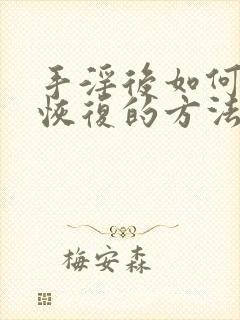 手淫後如何
恢復的方法
梅安森